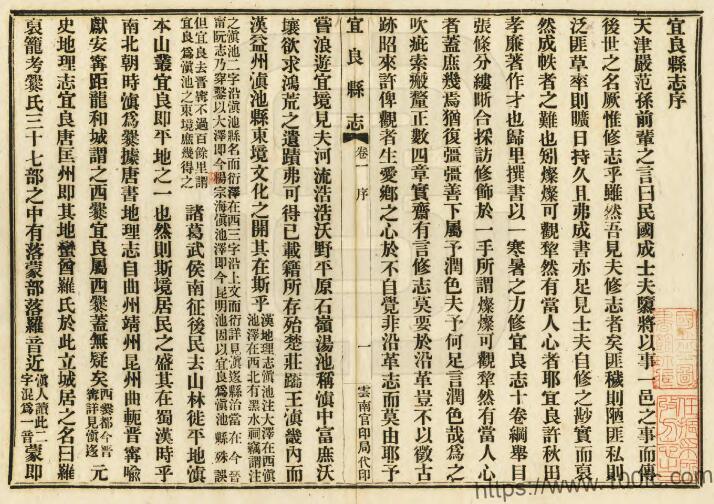 宜良縣志序
天津嚴范孫前輩之言曰民國成士夫墮將以事一邑之事而傳
後世之名厥惟修志乎雖然吾見夫修志者矣匪穢則陋匪私則
泛匪草率則曠日持久且弗成書亦足見士夫自修之尠實而裒
然成帙者之難也矧燦燦可觀犖然有當人心者耶宜良許秋田
孝廉著作才也歸里撰書以一寒暑之力修宜良志十卷綱舉目
張條分縷晰合採訪修飾於一手所謂燦燦可觀犖然有當人心
者蓋庶幾焉猶復彊彊善下屬予潤色夫予何足言潤色哉為之
吹疵索瘢釐正數四章實齋有言修志莫要於沿革豈不以徵古
跡昭來許俾觀者生愛鄉之心於不自覺非沿革志而莫由耶予
宜良縣志 卷一 序 一 雲南官印局代印
嘗浪遊宜境見夫河流浩浩沃野平原石嶺湯池稱滇中富庶沃
壤欲求鴻荒之遺蹟弗可得已載籍所存殆楚莊蹻王滇畿內而
漢益州滇池縣東境文化之開其在斯乎
漢地理志滇池注大澤在西滇
池澤在西北有黑水祠竊謂注
之滇池二字沿滇池縣名而衍澤在西三字沿上文而衍詳見滇遂縣治當在今晉
甯阮志乃穿鑿以大澤即今楊宗海滇池澤即今昆明池因以宜良為滇池縣殊誤
但宜良去晉甯不過百餘里謂
宜良為滇池之東境庶幾得之
諸葛武侯南征後民去山林徙平地滇
本山叢宜良即平地之一也然則斯境居民之盛其在蜀漢時乎
南北朝時滇為爨據唐書地理志自曲州靖州昆州曲軛晉甯喩
獻安甯距龍和城謂之西爨宜良屬西爨蓋無疑矣
西爨都今晉
甯詳見滇遂
元
史地理志宜良唐匡州即其地蠻酋羅氏於此立城居之名曰羅
裒籠考爨氏三十七部之中有落蒙部落羅音近
滇人讀此二
字混為一音
蒙即